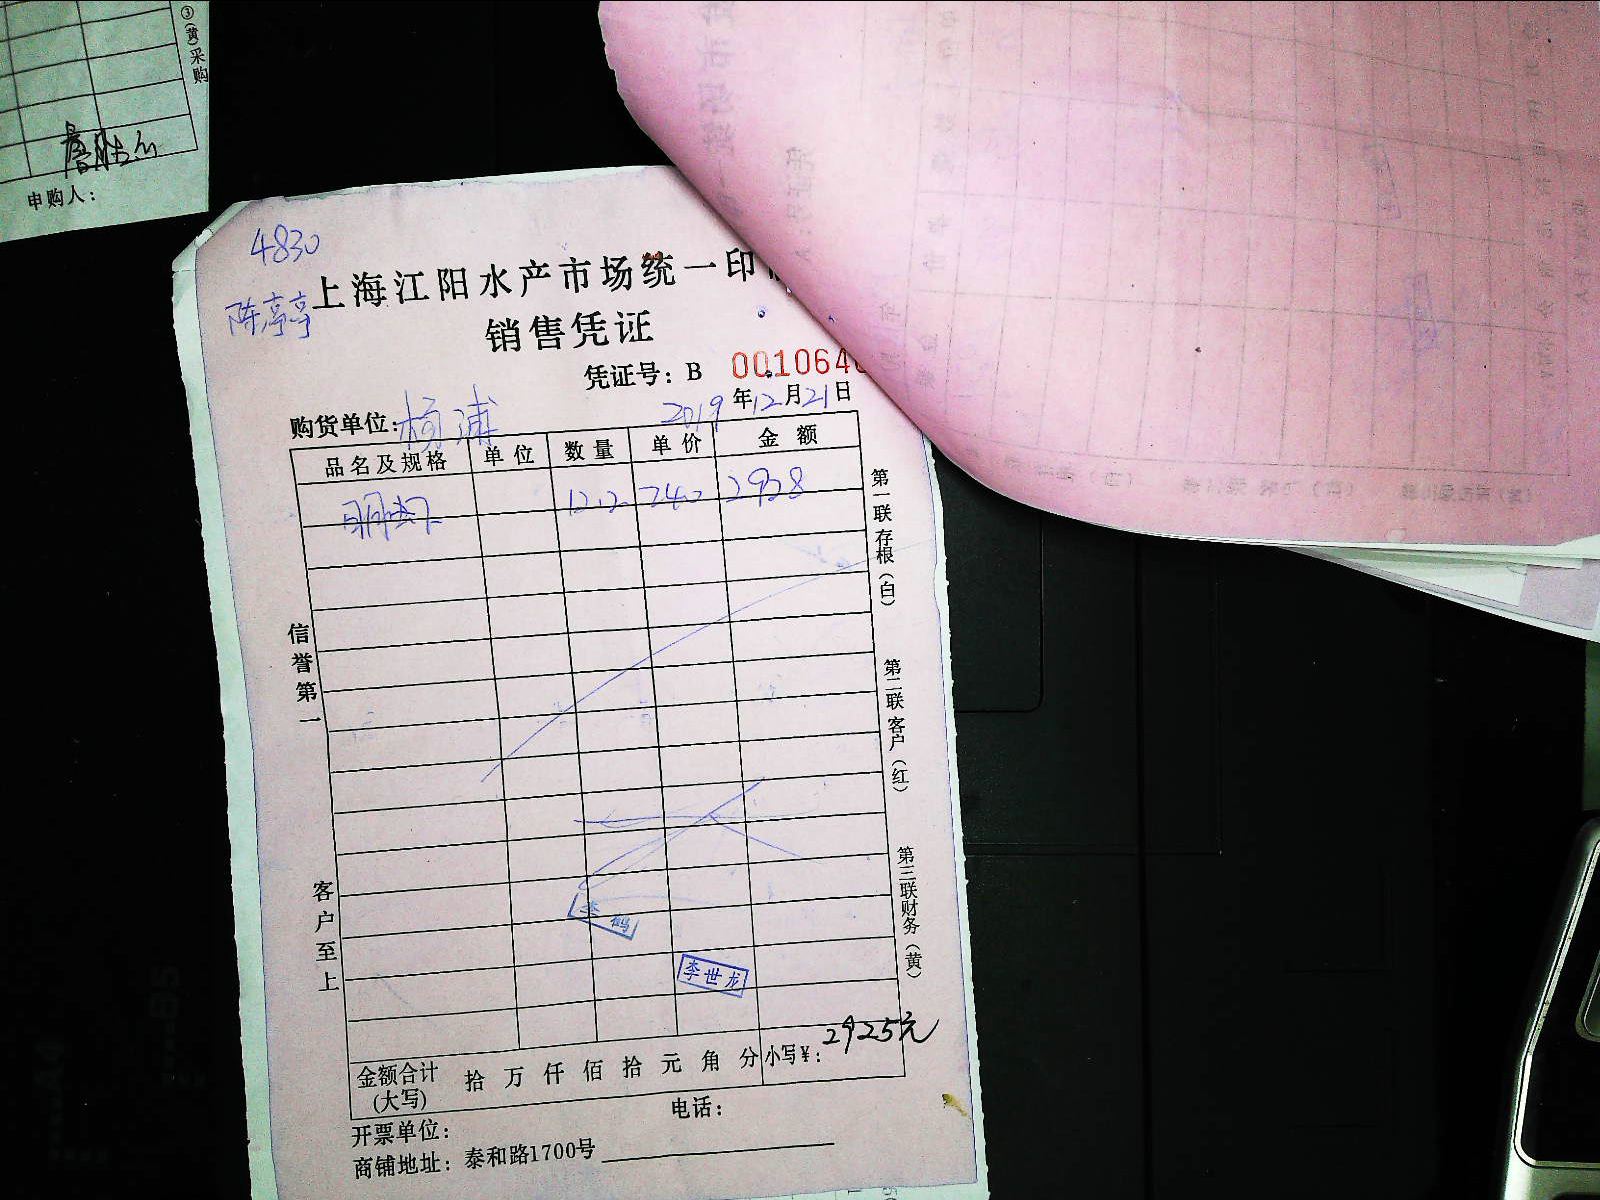 ③(黄)采购
申购人:
4830
陈亭亭
上海江阳水产市场统一印
销售凭证
凭证号: B 001064
购货单位: 杨浦 2019年12月21日
品名及规格 单位 数量 单价 金额
明虾 12.2 240 2928
信誉第一
客户至上
第一联存根(白)
第二联客户(红)
第三联财务(黄)
李鹤
李世龙
金额合计(大写) 拾 万 仟 佰 拾 元 角 分 小写¥: 2925元
电话:
开票单位:
商铺地址: 泰和路1700号